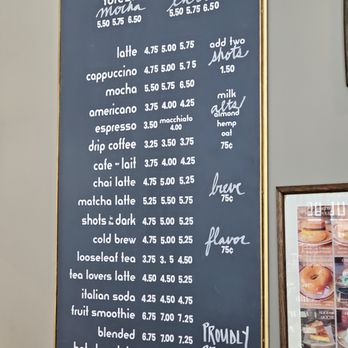 mocha
5.50 5.75 6.50
5.50 5.75 6.50
latte 4.75 5.00 5.75
cappuccino 4.75 5.00 5.75
mocha 5.50 5.75 6.50
americano 3.75 4.00 4.25
espresso 3.50 macchiato 4.00
drip coffee 3.25 3.50 3.75
cafe - lait 3.75 4.00 4.25
chai latte 4.75 5.00 5.25
matcha latte 5.25 5.50 5.75
shots in the dark 4.75 5.00 5.25
cold brew 4.75 5.00 5.25
looseleaf tea 3.75 3. 5 4.50
tea lovers latte 4.50 4.50 5.25
italian soda 4.25 4.50 4.75
fruit smoothie 6.75 7.00 7.25
blended 6.75 7.00 7.25
add two
shots
1.50
milk
alts/
almond
hemp
oat
75¢
breve
75¢
flavor
75¢
PROUDLY